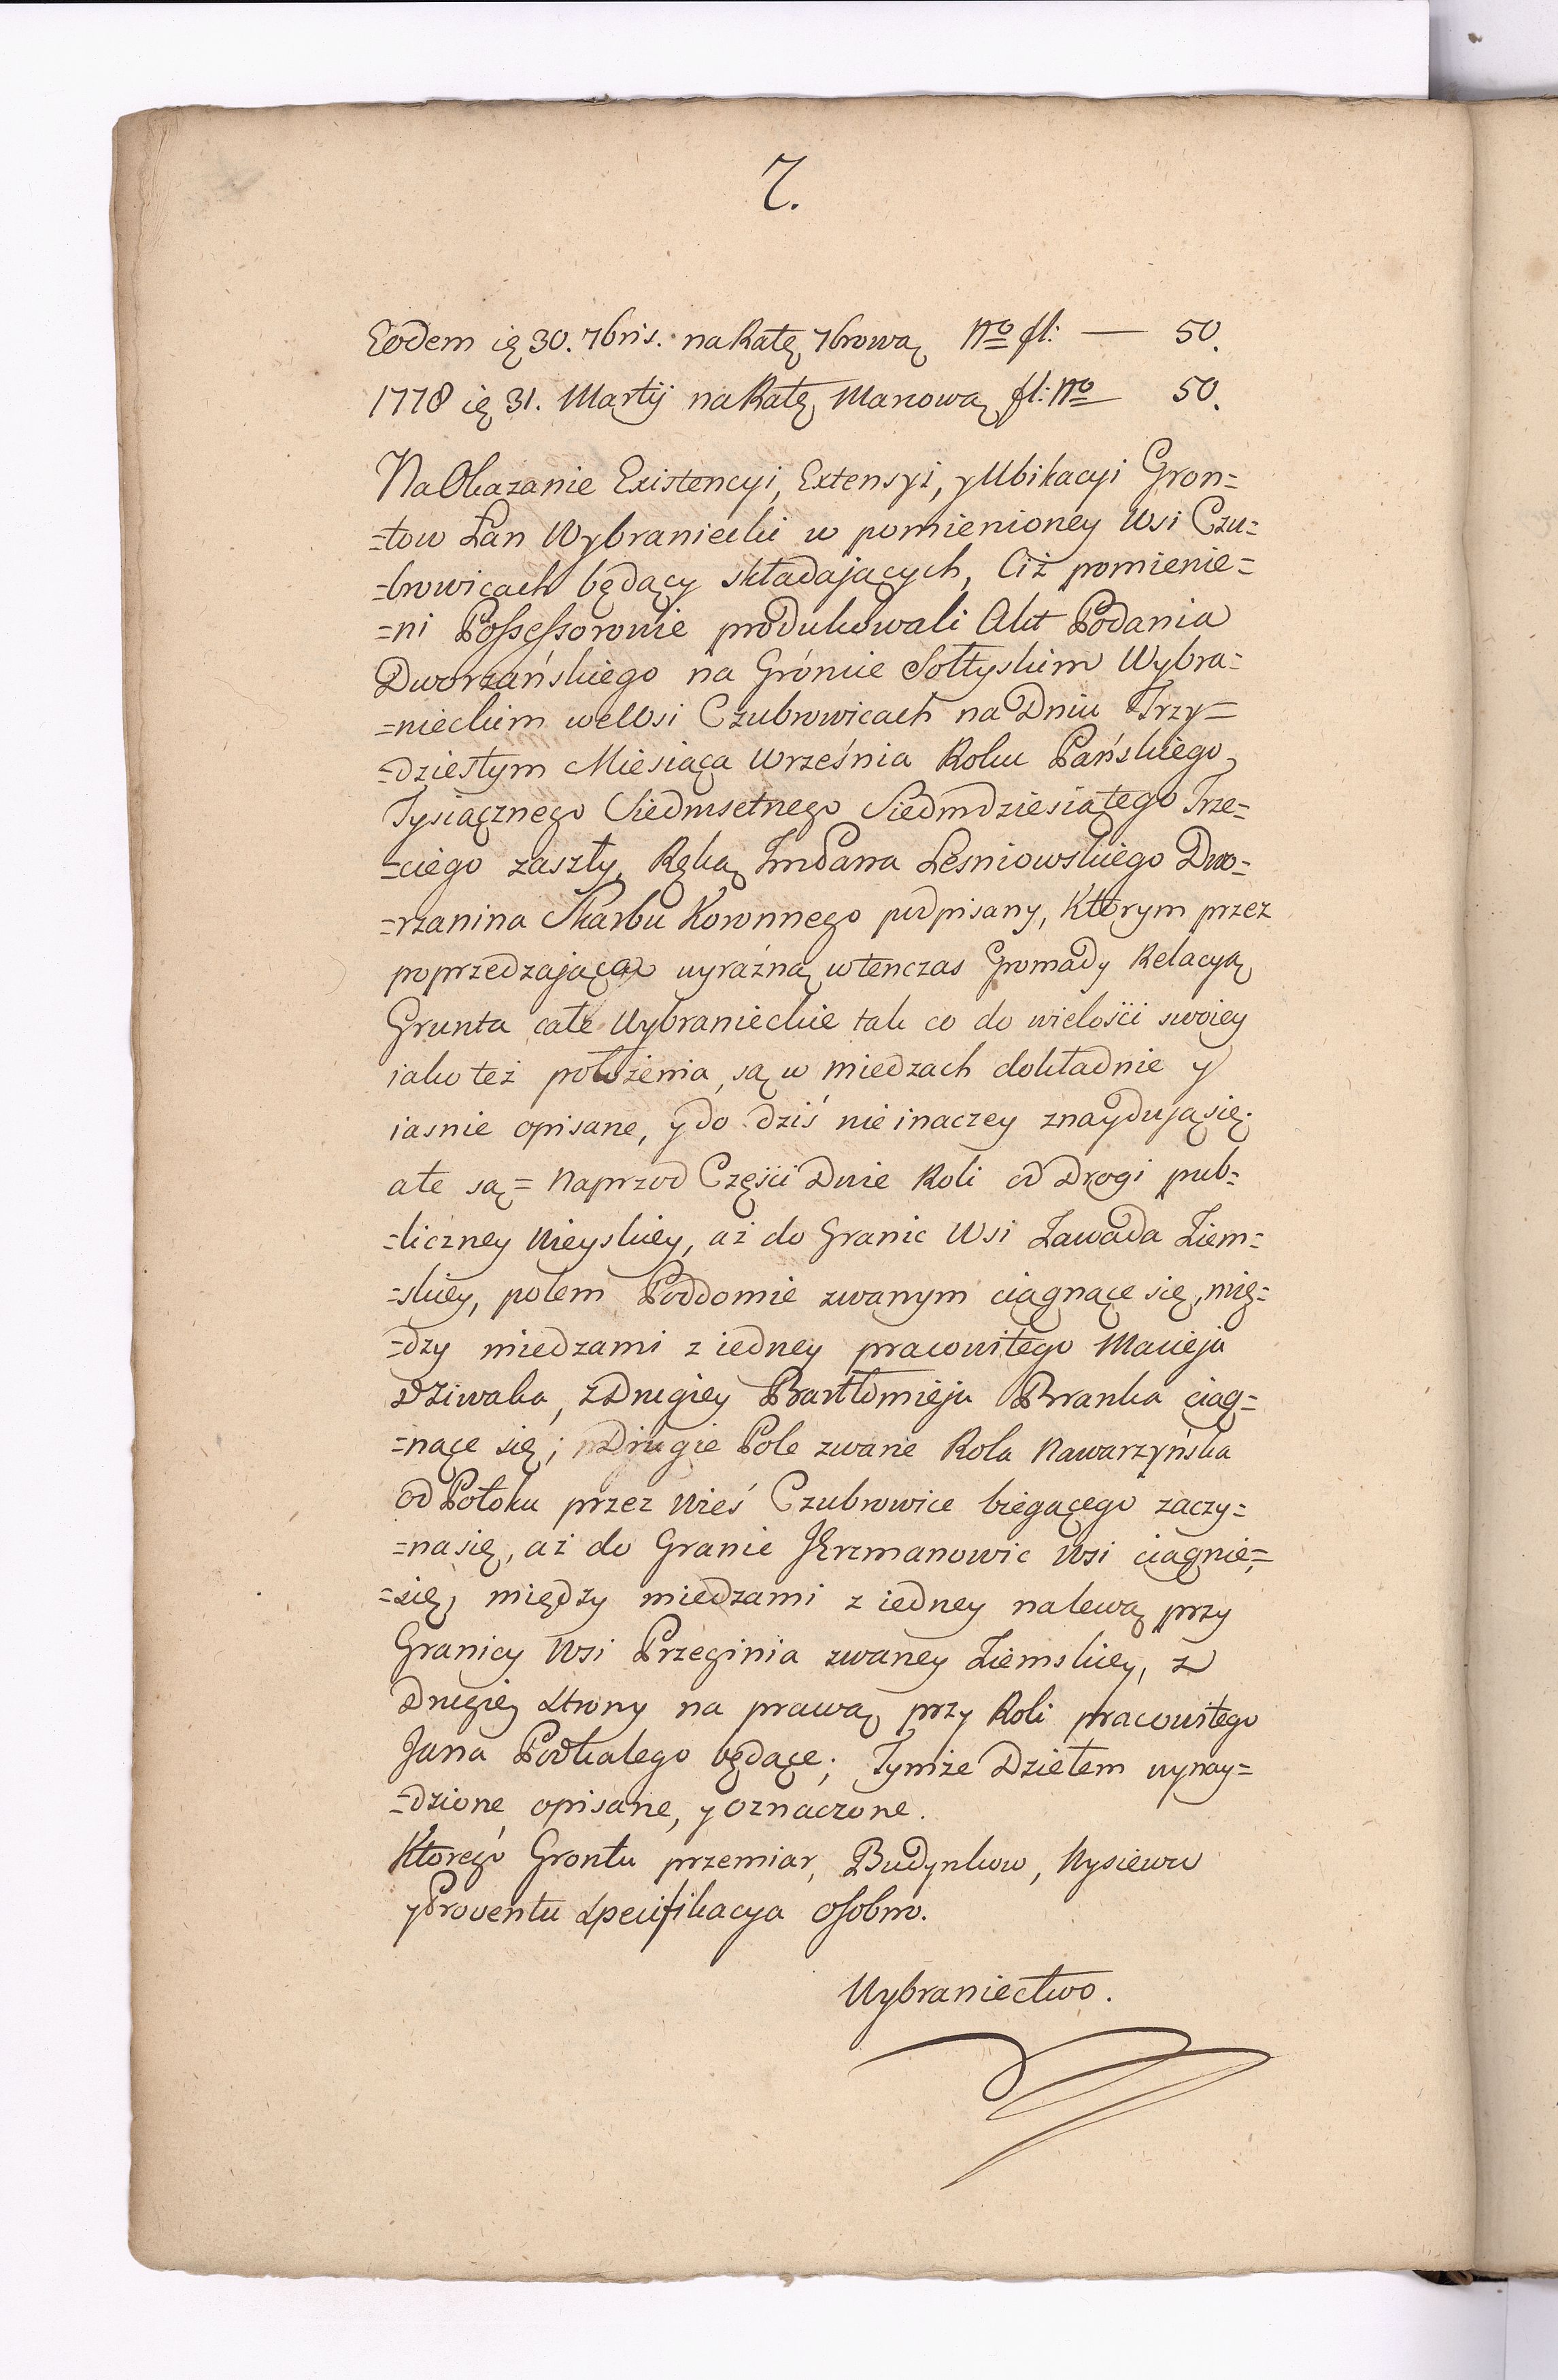 7.
Eodem ię 30. 7bris. na Ratę 7brową No fl: — 50.
1778 ię 31. Martij na Ratę Marcową fl: No 50.
Na Okazanie Existencyi, Extensyi, y Ubikacyi Gron=
=tow Łan Wybraniecki w pomienioney Wsi Czu=
=browicach będący składających, Ciż pomienie=
=ni Possessorowie produkowali Akt Podania
Dworzańskiego na Gróncie Sołtyskim Wybra=
=nieckim we Wsi Czubrowicach na Dniu Trzy=
=dziestym Miesiąca Września Roku Pańskiego
Tysiącznego Siedmsetnego Siedmdziesiątego Trze=
=ciego zaszły, Ręką Im Pana Lesniowskiego Dwo=
=rzanina Skarbu Koronnego podpisany, Którym przez
poprzedzającą wyraźną wtenczas Gromady Relacyą
Grunta całe Wybranieckie tak co do wielości swoiey
iako też położenia, są w miedzach dokładnie y
iasnie opisane, y do dziś nie inaczey znaydują się.
ate są= Naprzod Części Dwie Roli od Drogi pub=
=liczney Wieyskiey, aż do Granic Wsi Zawada Ziem=
=skiey, polem Poddomie zwanym ciągnące się, mię=
=dzy miedzami z iedney pracowitego Macieja
Dziwaka, z Drugiey Bartłomieja Branka ciąg=
=nące się; Drugie Pole zwane Rola Nawarzyńska
od Potoku przez Wieś Czubrowice biegącego zaczy=
=na się, aż do Granic JErzmanowic Wsi ciągnie=
=się, między miedzami z iedney na lewą przy
Granicy Wsi Przeginia zwaney Ziemskiey, z
Drugiey strony na prawą przy Roli pracowitego
Jana Podkalego będące; Tymże Dziełem wynay=
=dzione, opisane, y oznaczone.
Ktorego Grontu przemiar, Budynkow, Wysiewu
y Proventu specifikacya osobno.
Wybraniectwo.